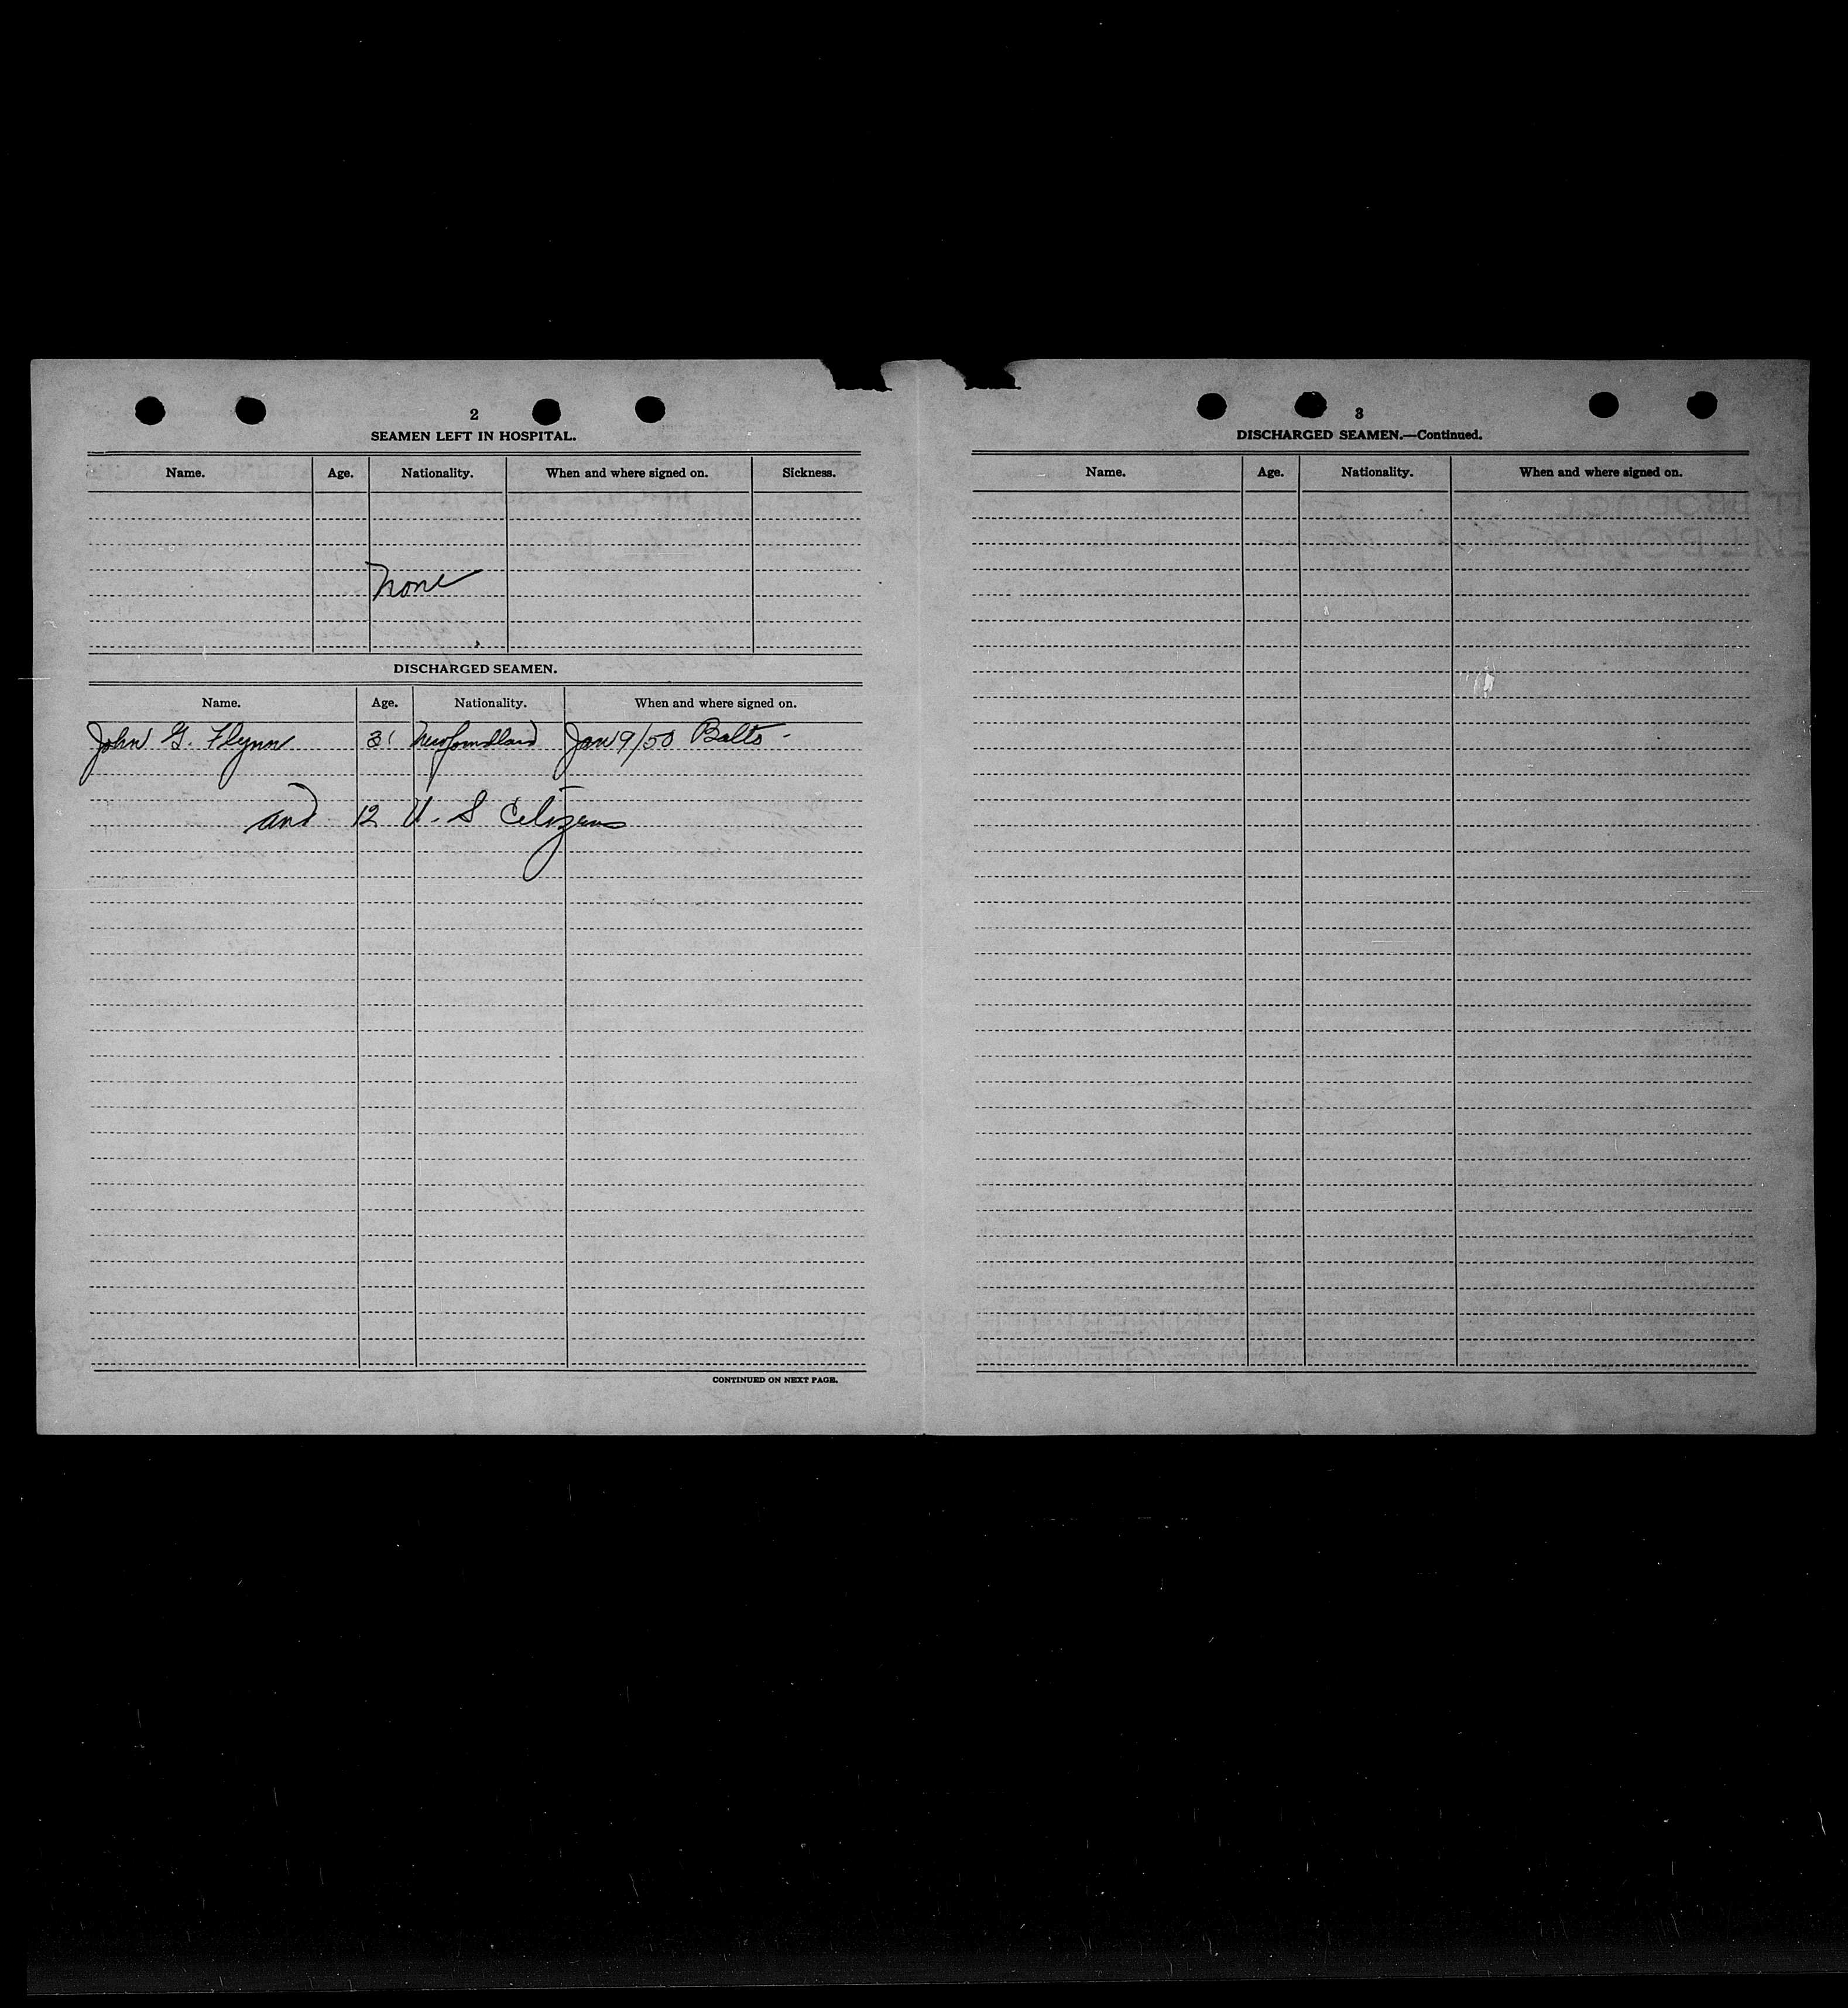 2
SEAMEN LEFT IN HOSPITAL.
Name. Age. Nationality. When and where signed on. Sickness.
None
DISCHARGED SEAMEN.
Name. Age. Nationality. When and where signed on.
John G. Flynn 31 Newfoundland Jan 9/50 Balto -
and 12 U. S Citizens
CONTINUED ON NEXT PAGE.
3
DISCHARGED SEAMEN.—Continued.
Name. Age. Nationality. When and where signed on.